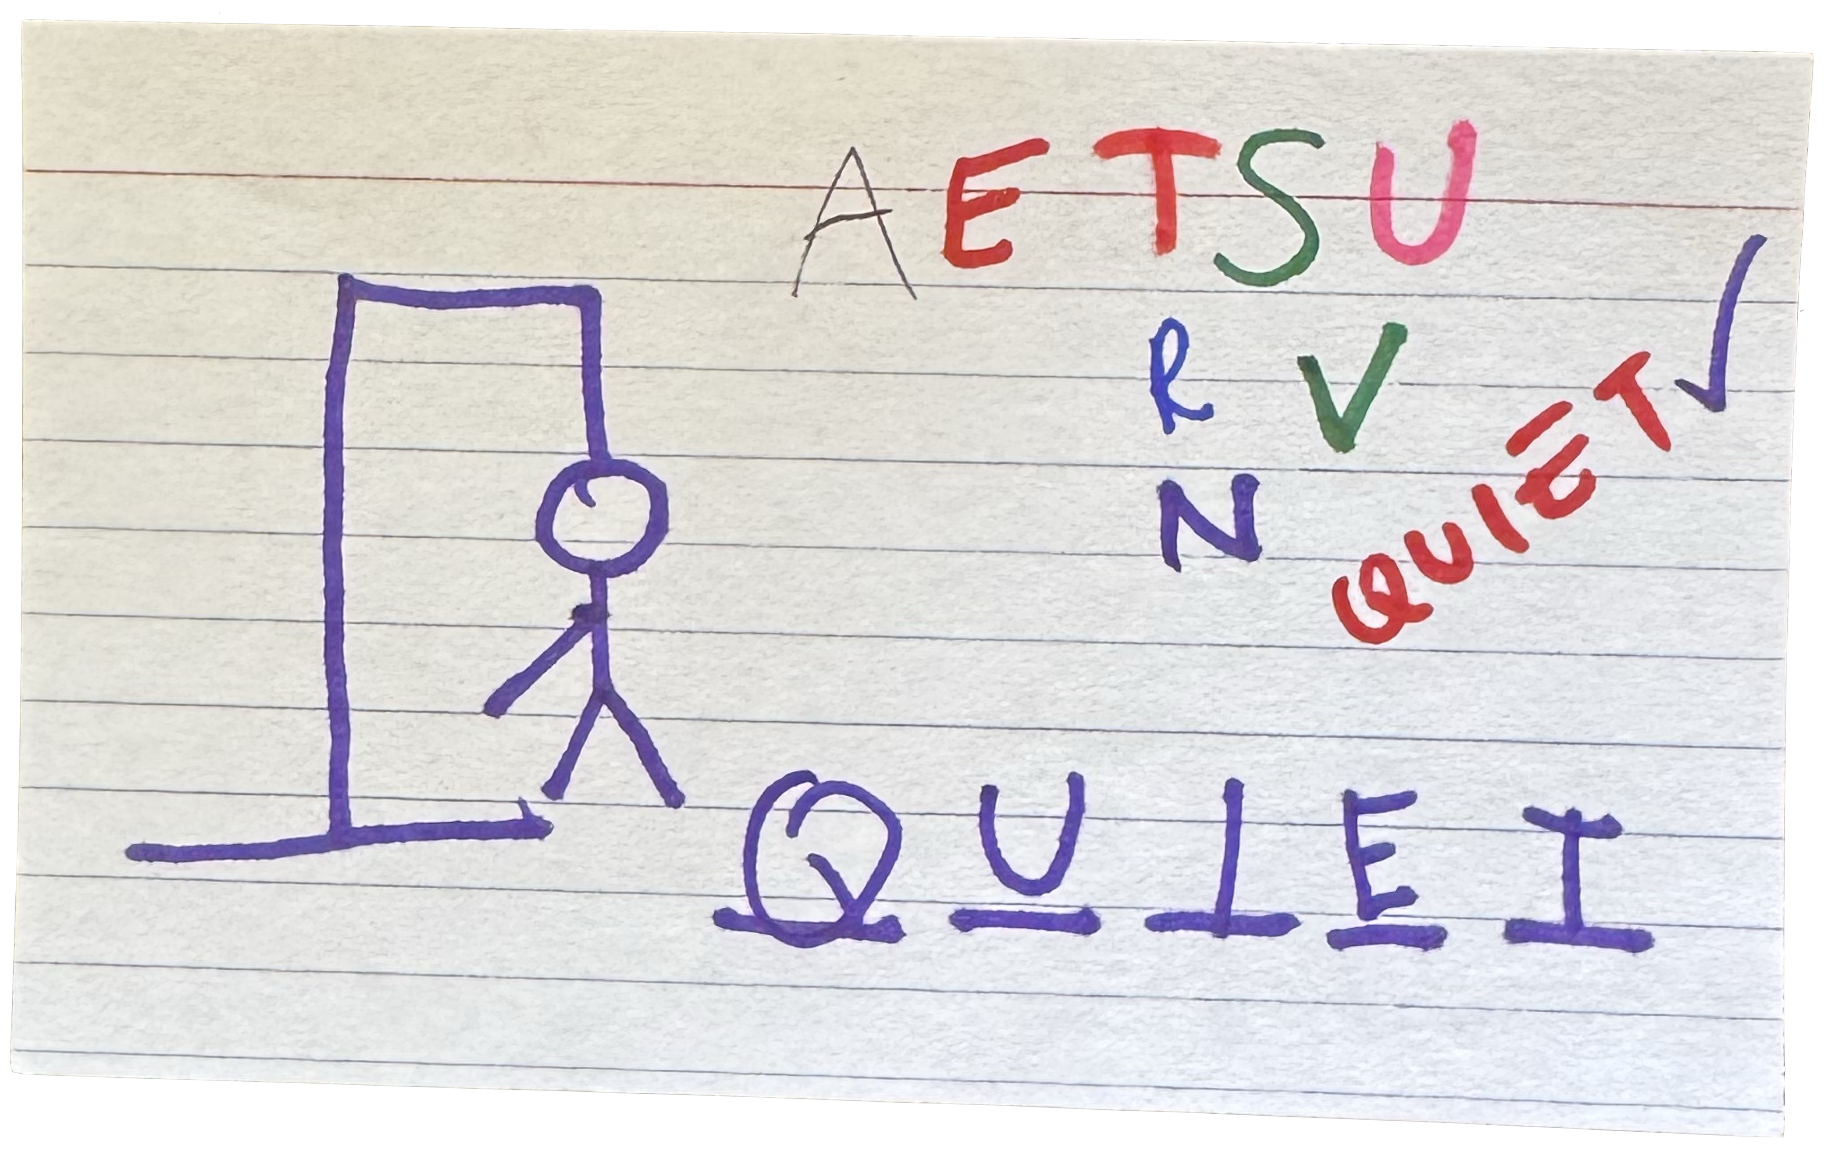 A E T S U
R V
N
QUIET ✓
Q U I E T